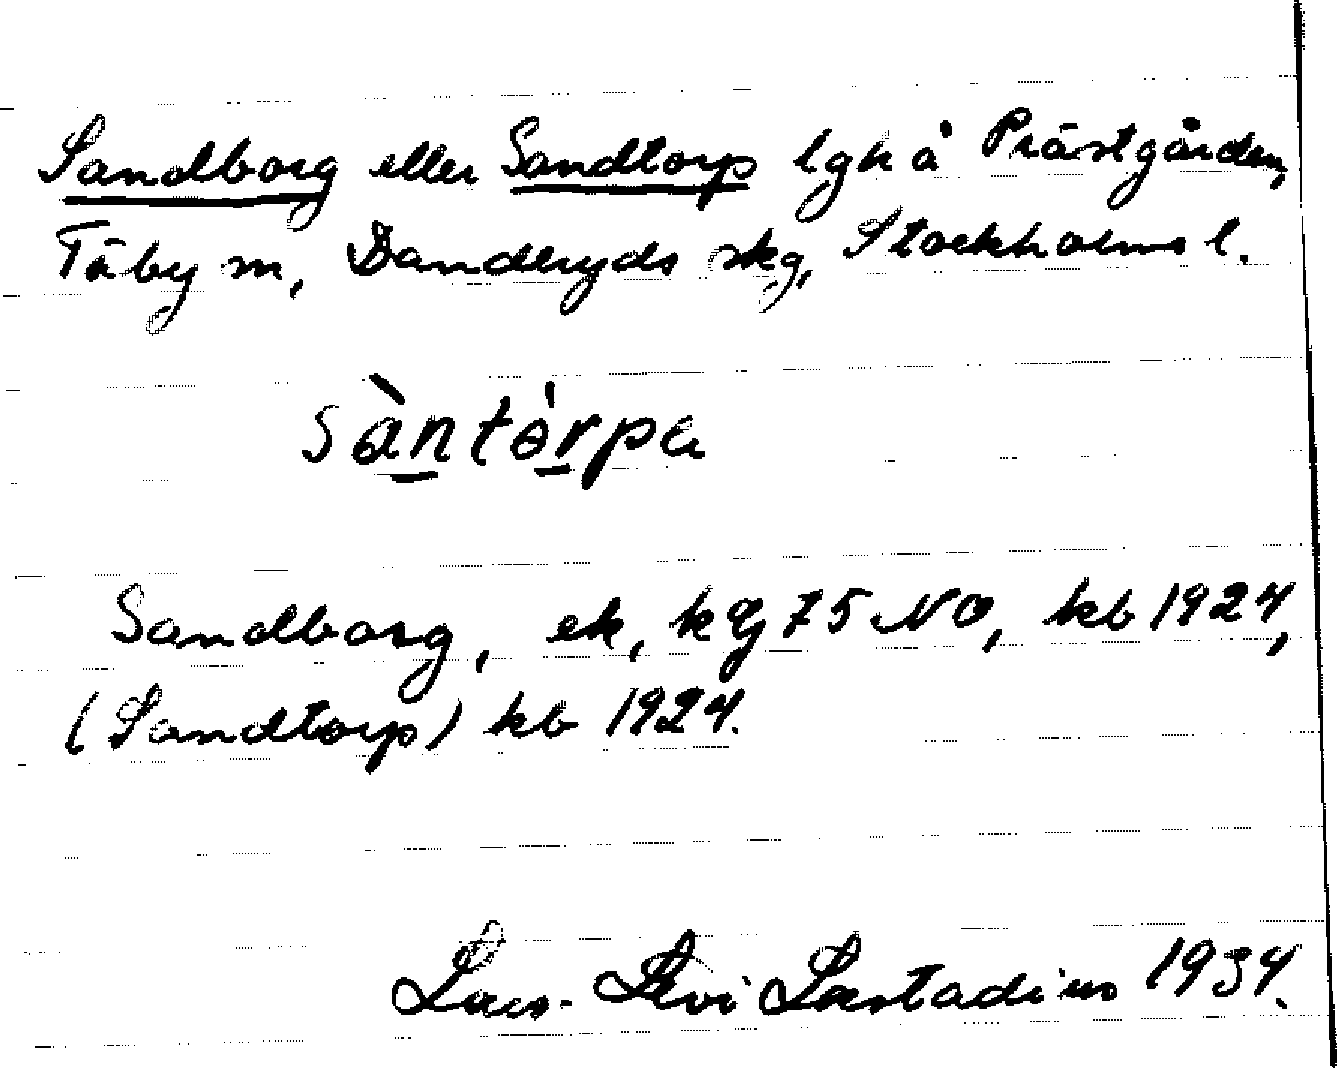 Sandborg eller Sandtorp lgh å Prästgården,
Täby sn, Danderyds skg, Stockholms l.
sàntórpa
Sandborg, ek, kbl 75 NO, kb 1924,
(Sandtorp) kb 1924.
Lars-Levi Læstadius 1934.